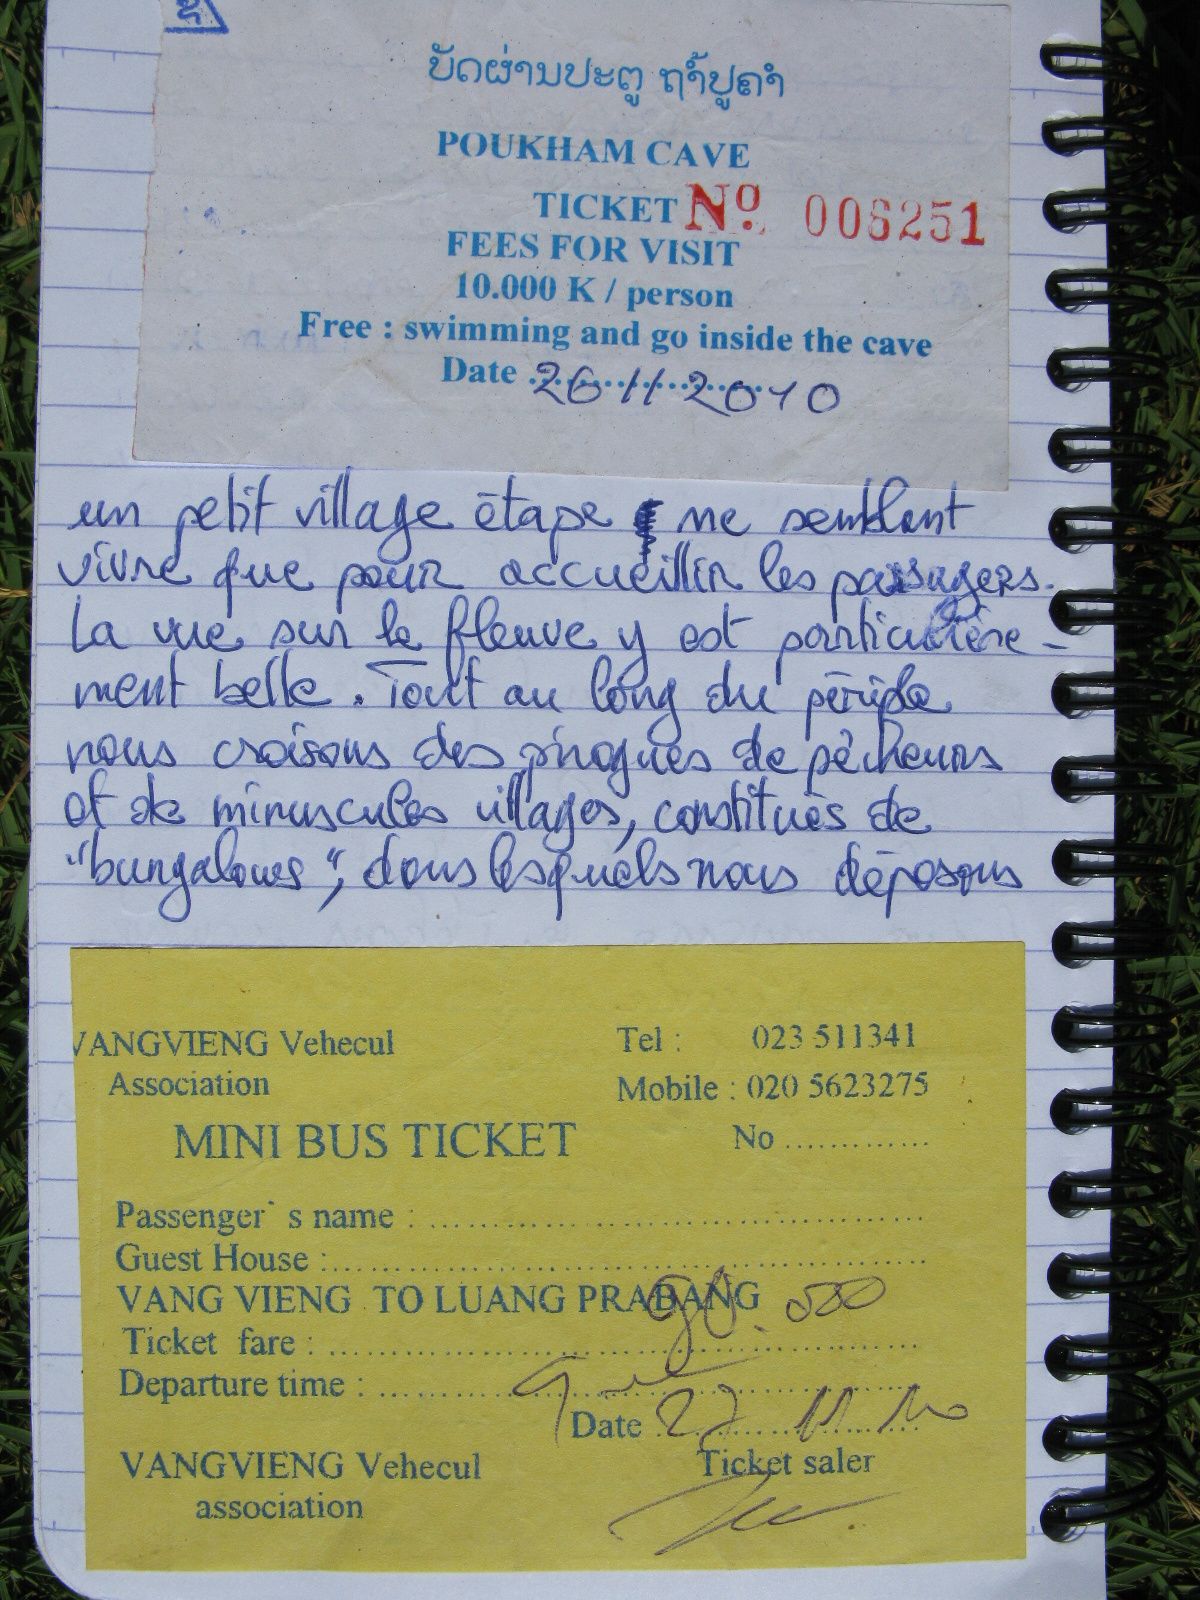 ບັດຜ່ານປະຕູ ຖ້ຳປູຄຳ
POUKHAM CAVE
TICKET Nº. 006251
FEES FOR VISIT
10.000 K / person
Free : swimming and go inside the cave
Date 26 11 2010
un petit village étape ne semblant
vivre que pour accueillir les passagers.
La vue sur le fleuve y est particulière-
ment belle. Tout au long du périple
nous croisons des pirogues de pêcheurs
et de minuscules villages, constitués de
"bungalows", dans lesquels nous déposons
VANGVIENG Vehecul
Association
Tel : 023 511341
Mobile : 020 5623275
MINI BUS TICKET
No .............
Passenger` s name : ......................................
Guest House : ......................................
VANG VIENG TO LUANG PRABANG
Ticket fare : ......................................
Departure time : ......................................
Date 27 11 10
VANGVIENG Vehecul
association
Ticket saler